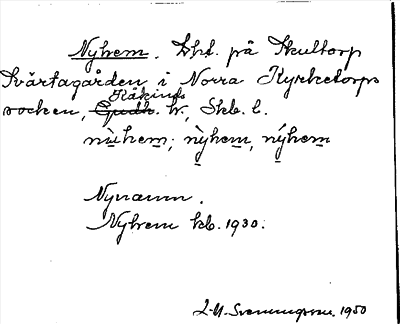 Nyhem. Lht. på Skultorp
Svärtagården i Norra Kyrketorps
socken, Gudh. Kåkinds hr, Skb. l.
nùhem; nỳhem, nýhem
Nynamn.
Nyhem kb. 1930.
L-M. Svenningsson. 1950